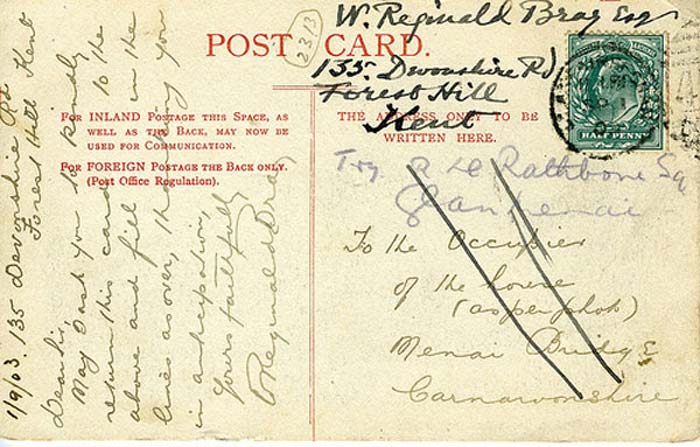 2313
POST CARD.
W. Reginald Bray Esq
135. Devonshire Rd
Forest Hill
Kent
HALF PENNY
FOR INLAND POSTAGE THIS SPACE, AS
WELL AS THE BACK, MAY NOW BE
USED FOR COMMUNICATION.
FOR FOREIGN POSTAGE THE BACK ONLY.
(Post Office Regulation).
THE ADDRESS ONLY TO BE
WRITTEN HERE.
Try R Rathbone Sq
Glan menai
To the Occupier
of the house
(as per photo)
Menai Bridge
Carnarvonshire
1/9/03. 135 Devonshire Rd
Forest Hill Kent
Dear Sir,
May I ask you to kindly
return this card to the
above and fill in the
lines as over, thanking you
in anticipation,
Yours faithfully
W Reginald Bray